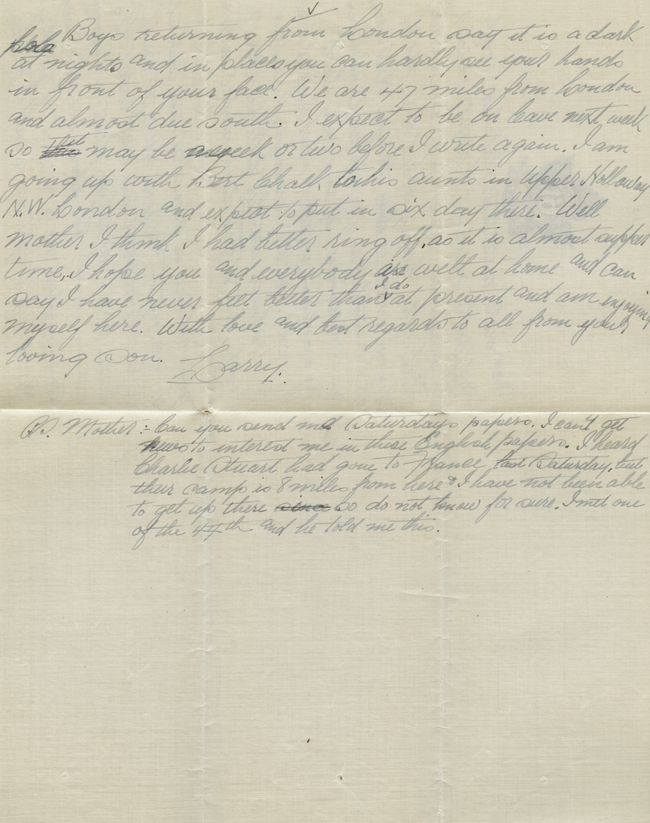 Boys returning from London say it is a dark
hole at nights and in places you can hardly see your hands
in front of your face. We are 47 miles from London
and almost due south. I expect to be on leave next week
so that may be a week or two before I write again. I am
going up with Bert Chalk to his aunts in Upper Holloway
N.W. London and expect to put in six day there. Well
mother I think I had better ring off, as it is almost supper
time, I hope you and everybody are well at home and can
say I have never felt better than I do at present and am enjoying
myself here. With love and best regards to all from your
loving son. Larry.
P.S. Mother:- Can you send me Saturdays papers. I can't get
news to interest me in these English papers. I heard
Charlie Stuart had gone to France last Saturday, but
their camp is 8 miles from here & I have not been able
to get up there since so do not know for sure. I met one
of the 44th and he told me this.